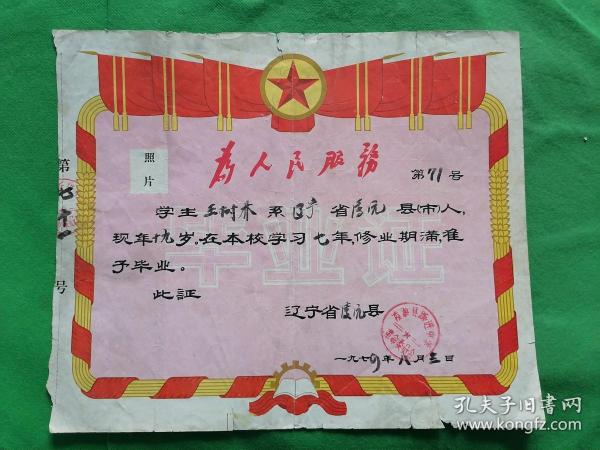 为人民服务
照片
第71号
学生王树木系辽宁省清元县(市)人,
现年十九岁。在本校学习七年,修业期满,准
予毕业。
毕业证
此证
辽宁省清元县
一九七九年八月三日
第 七十一 号
孔夫子旧书网
www.kongfz.com